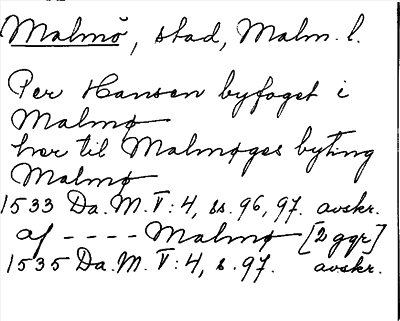 Malmö, stad, Malm. l.
Per Hansen byfoget i
Malmø
her til Malmøges byting
Malmø
1533 Da.M. V:4, ss. 96, 97. avskr.
af ---- Malmø [2 ggr]
1535 Da.M. V:4, s. 97. avskr.